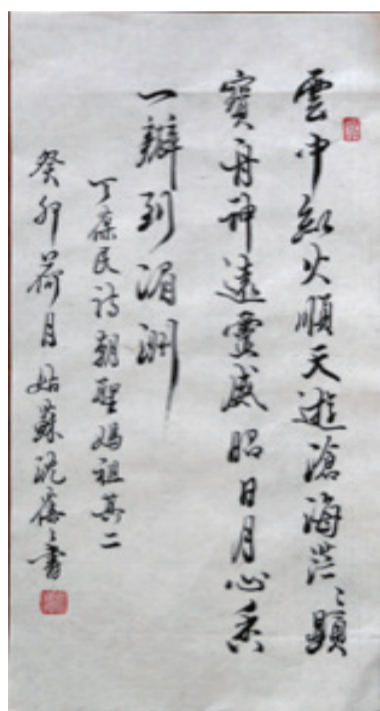 雲中紅火順天遊滄海茫〻顯
寶舟神遠靈威昭日月心香
一瓣到湄洲
丁葆民詩朝聖媽祖其二
癸卯荷月姑蘇沈蓓〻書